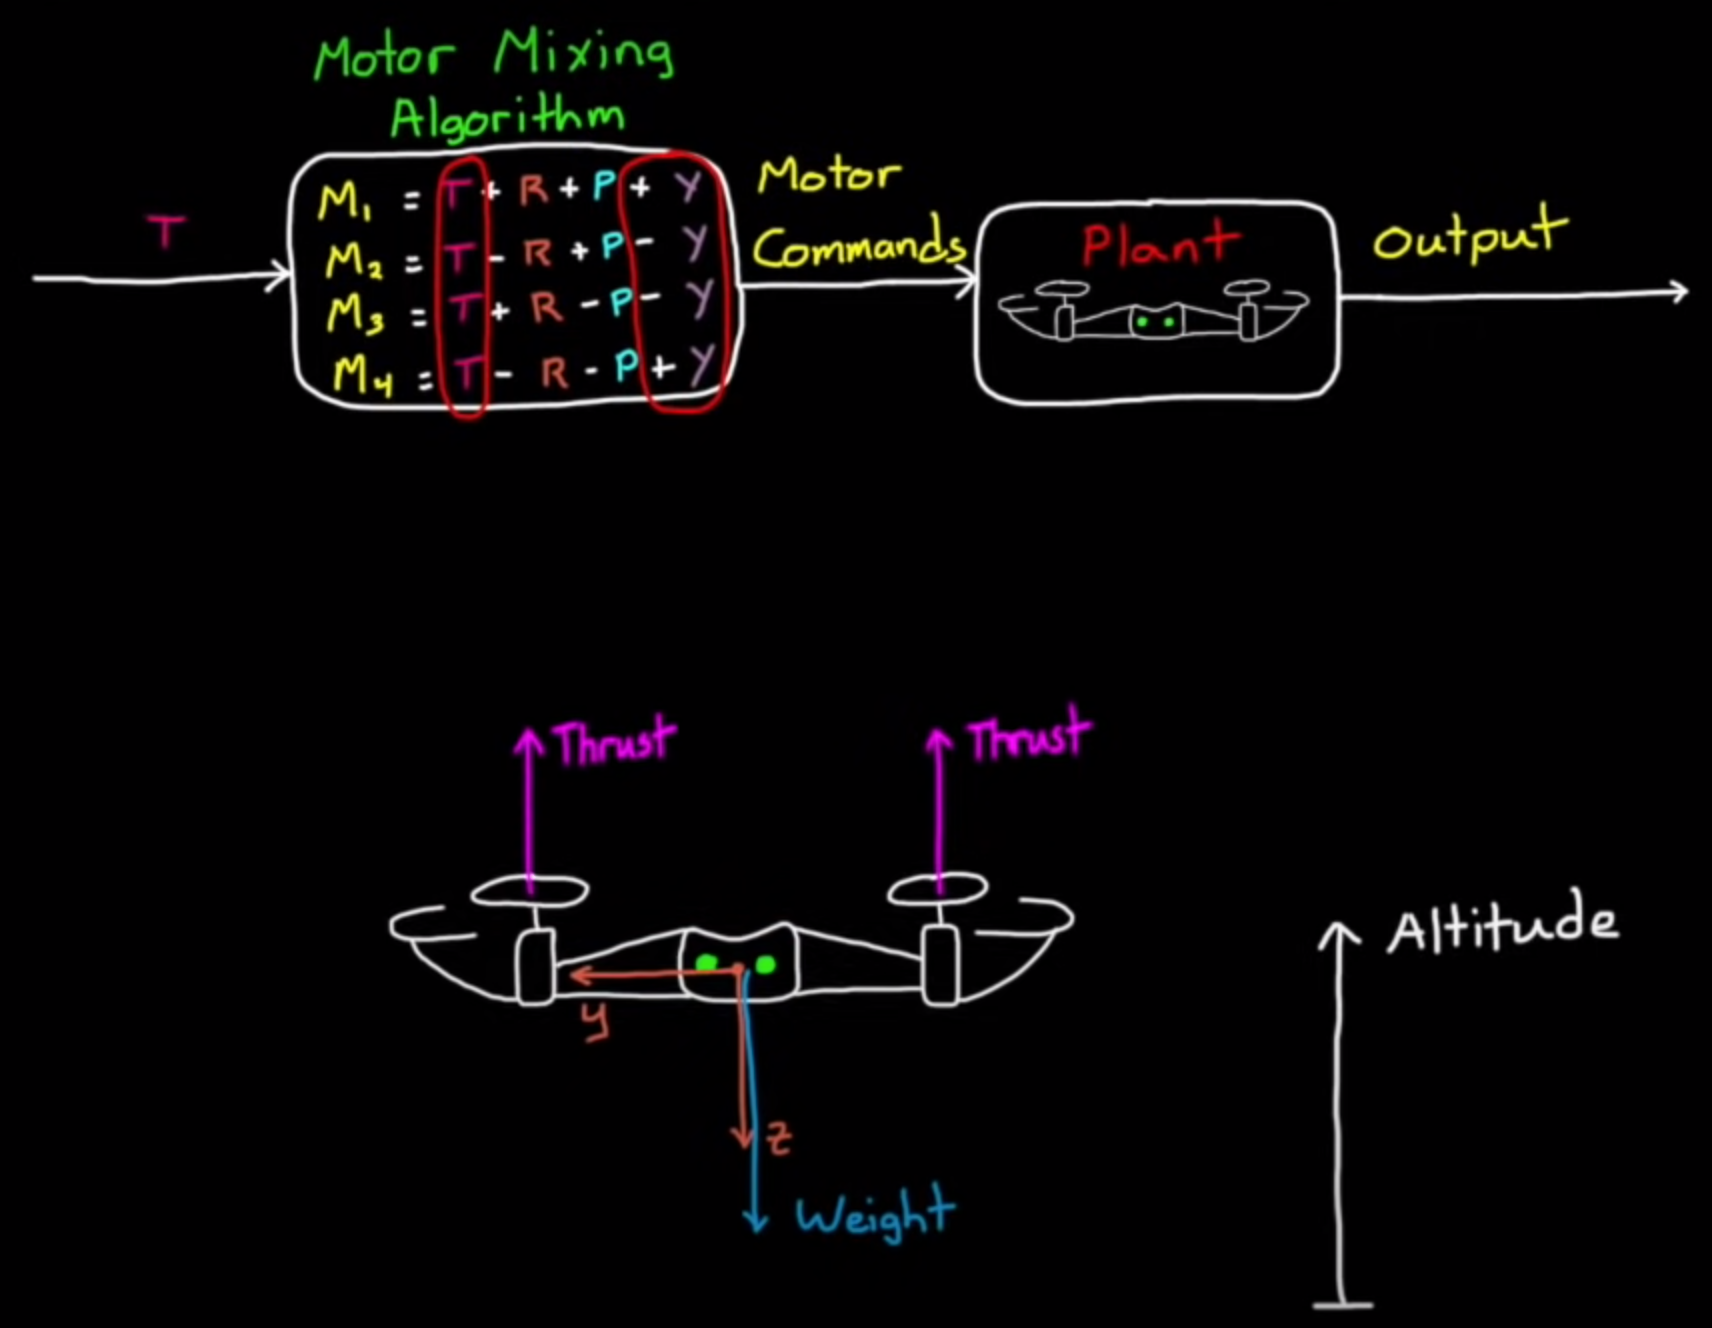 Motor Mixing
Algorithm
T
M₁ = T + R + P + Y
M₂ = T - R + P - Y
M₃ = T + R - P - Y
M₄ = T - R - P + Y
Motor
Commands
Plant
Output
Thrust
Thrust
Altitude
y
z
Weight